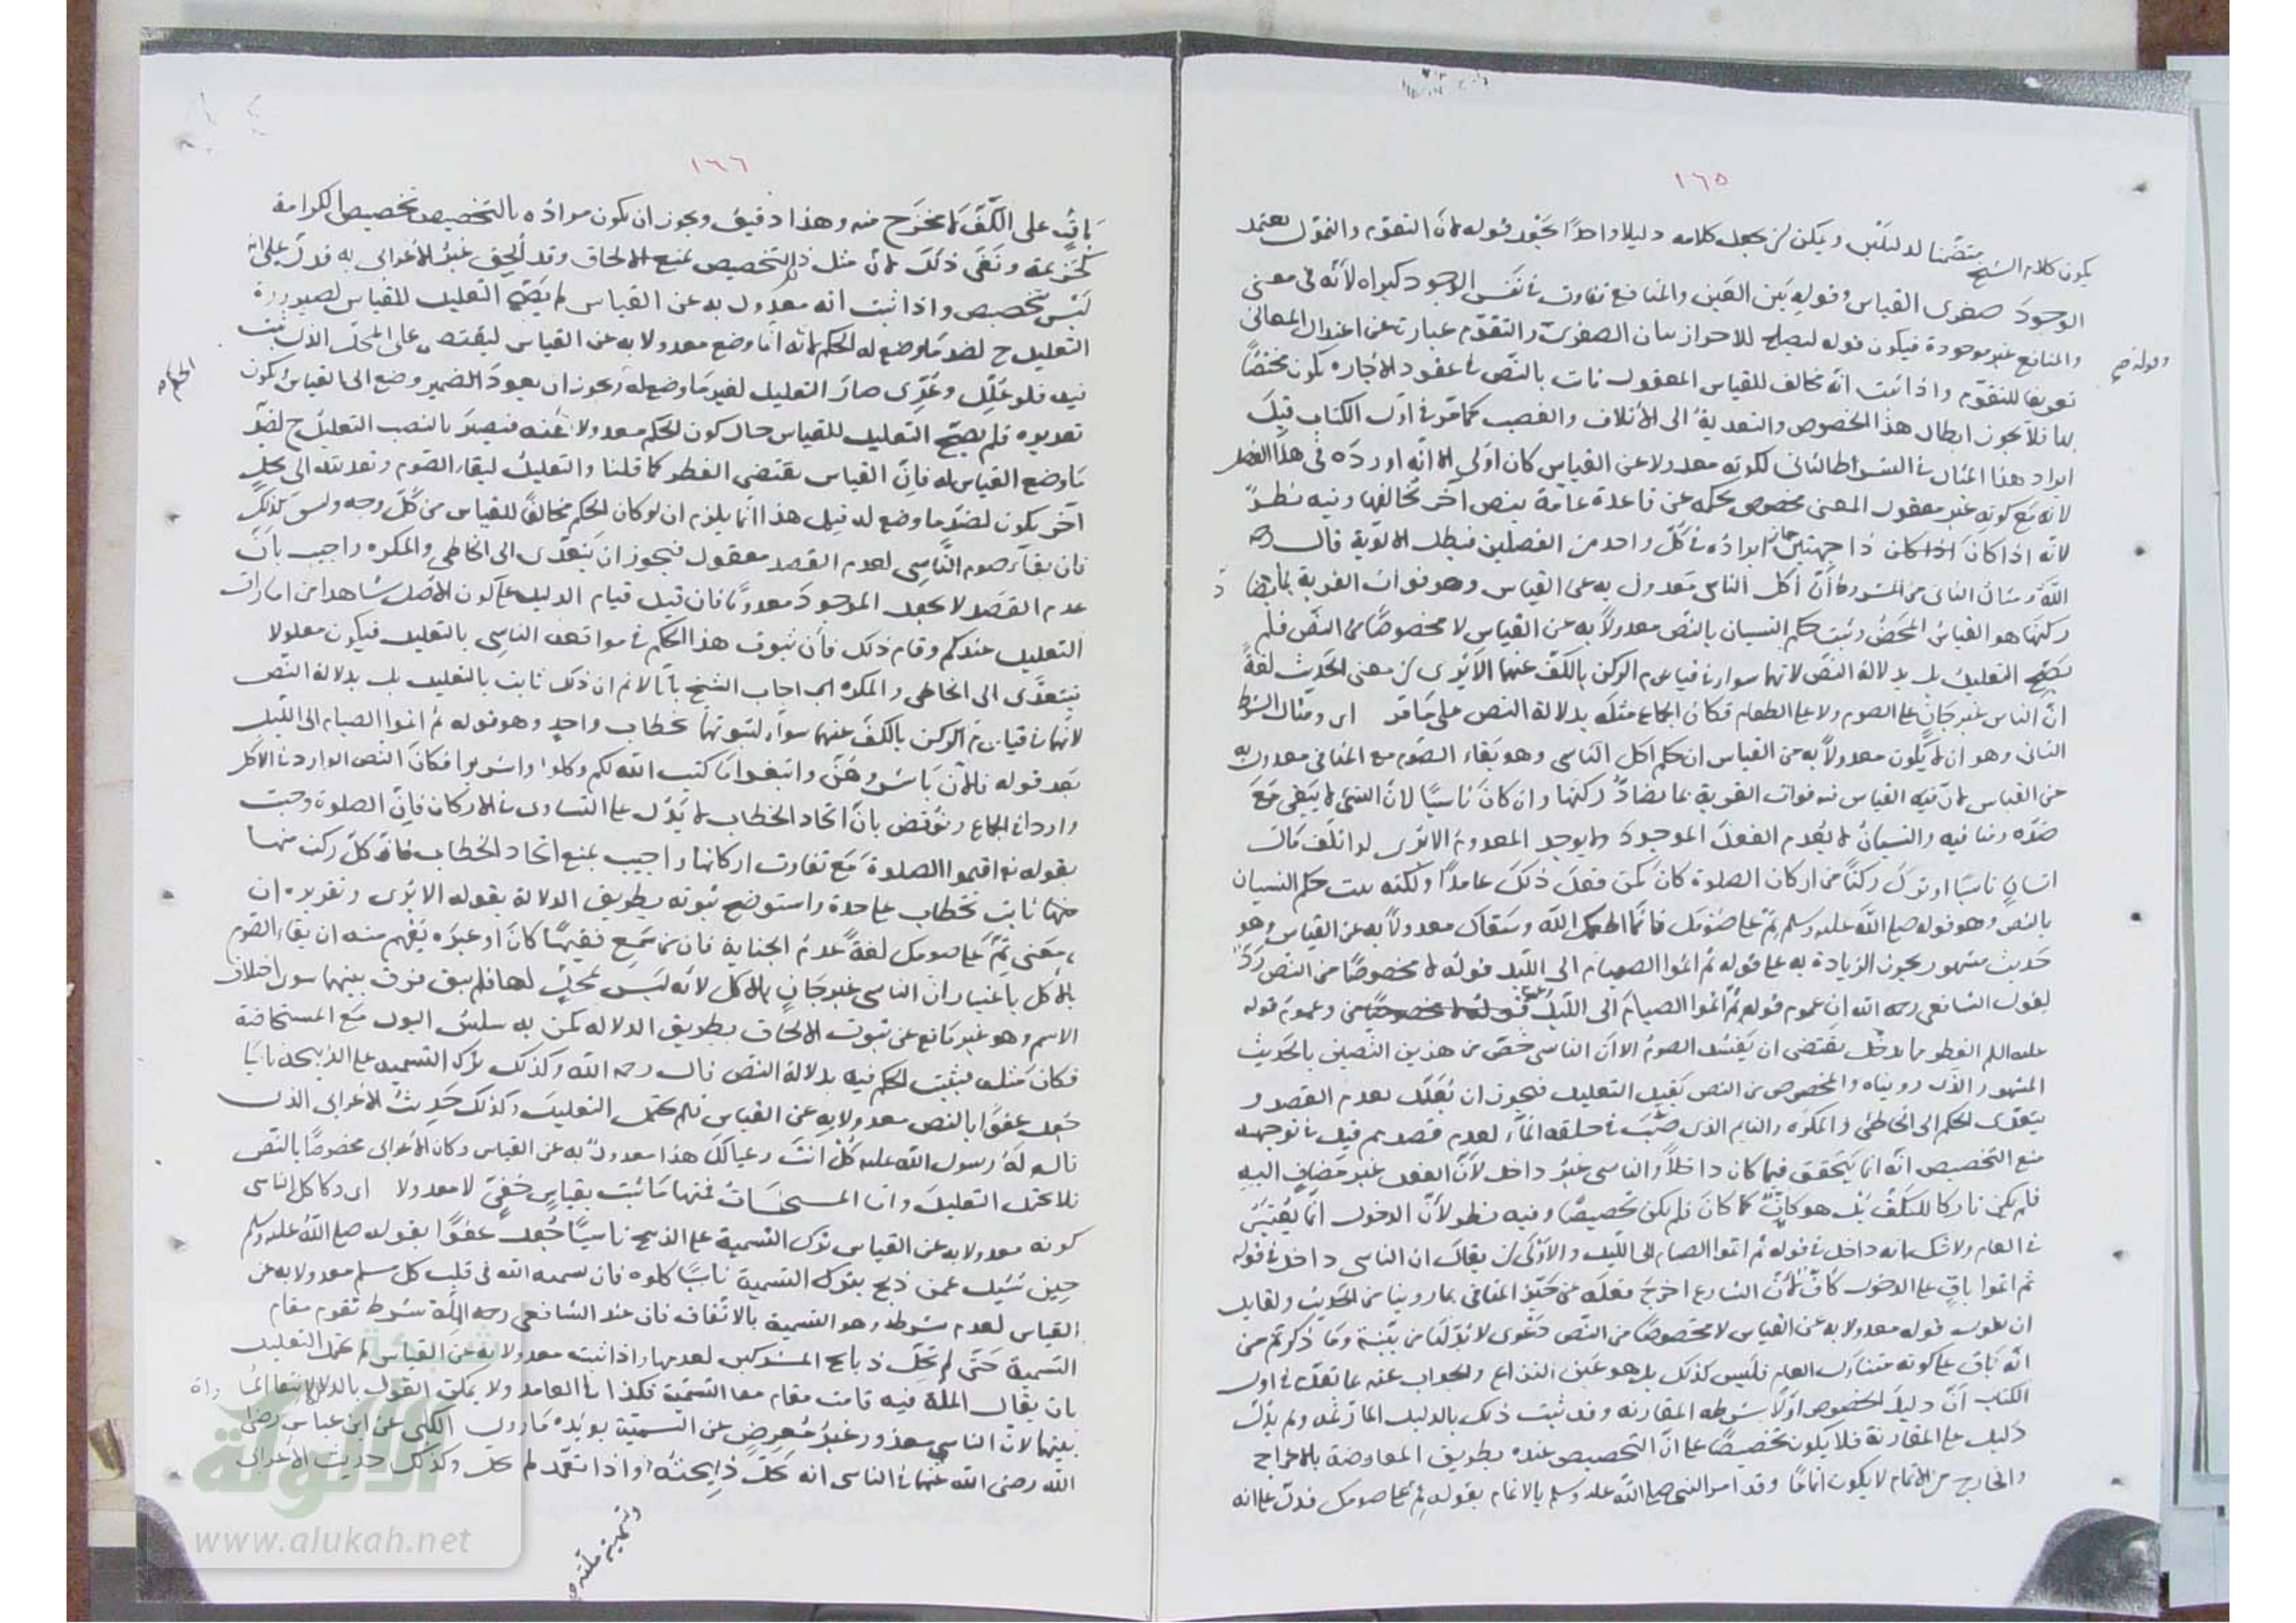 ١٦٥
يكون كلام الشيخ متضمنا لدليلين ويمكن ان يجعل كلامه دليلا واحدا بجعل قوله لان التقوم والتمول يعتمد
الوجود صغرى القياس وقوله بين العين والمنافع تفاوت في نفس الوجود كبراه لأنه في معنى
والمنافع غير موجودة فيكون قوله ليصلح للاحراز بيان الصغرى والتقوم عبارة عن اعتدال المعانى
تعريفا للتقوم واذا ثبت انه مخالف للقياس المعقول ثابت بالنص في عقود الاجارة يكون مختصا
بها فلا يجوز ابطال هذا الخصوص والتعدية الى الاتلاف والغصب كما مر في اول الكتاب قيل
ايراد هذا المثال في الشرط الثانى لكونه معدولا عن القياس كان اولى الا انه اورده في هذا الفصل
لانه مع كونه غير معقول المعنى مخصوص بحكمه عن قاعدة عامة بنص آخر يخالفها وفيه نظر
لانه اذا كان اذا كان ذا جهتين جاز ايراده في كل واحد من الفصلين فبطل الاولوية قال رحمه
الله ومثال الثانى من الشروط أن اكل الناسى معدول به عن القياس وهو فوات القربة بما يضاد
ركنها هو القياس المحض وثبت حكم النسيان بالنص معدولا به عن القياس لا مخصوصا من النص فلم
يصح التعليل بل بدلالة النص لانهما سواء في قيام الركن بالكف عنهما الا يرى ان معنى الحديث لغة
ان الناسى غير جان على الصوم ولا على الطعام فكان الجماع مثله بدلالة النص على ما مر اى ومثال الشرط
الثانى وهو ان لا يكون معدولا به من القياس ان حكم اكل الناسى وهو بقاء الصوم مع المنافى معدول به
عن القياس لان فيه القياس فيه فوات القربة بما يضاد ركنها وان كان ناسيا لان الشئ لا يبقى مع
ضده ومنافيه والنسيان لا يعدم الفعل الموجود ولا يوجد المعدوم الا يرى لو اتلف مال
انسان ناسيا او ترك ركنا من اركان الصلوة كان كمن فعل ذلك عامدا ولكنه ثبت حكم النسيان
بالنص وهو قوله صلى الله عليه وسلم تم على صومك فانما اطعمك الله وسقاك معدولا به عن القياس وهو
حديث مشهور يجوز الزيادة به على قوله ثم اتموا الصيام الى الليل قوله لا مخصوصا من النص رد
لقول الشافعى رحمه الله ان عموم قوله ثم اتموا الصيام الى الليل وعموم قوله
عليه السلم الفطر مما يدخل يقتضى ان يفسد الصوم الا ان الناسى خص من هذين النصين بالحديث
المشهور الذى رويناه والمخصوص من النص يقبل التعليل فيجوز ان يعلل بعدم القصد و
يتعدى الحكم الى الخاطئ والمكره والنائم الذى صب في حلقه الماء لعدم قصدهم قيل في توجيه
منع التخصيص انه انما يتحقق فيما كان داخلا والناسى غير داخل لأن الفعل غير مضاف اليه
فلم يكن تاركا للكف بل هو كاف كما كان فلم يكن تخصيصا وفيه نظر لأن الدخول انما يعتبر
في العام ولا شك انه داخل في قوله ثم اتموا الصيام الى الليل والاولى ان يقال ان الناسى داخل في قوله
ثم اتموا باق على الدخول كاف لأن الشارع اخرج فعله عن حيز المنافى بما روينا من الحديث ولقائل
ان يقول قوله معدولا به عن القياس لا مخصوصا من النص دعوى لا بد لها من بينة وما ذكرتم من
انه باق على كونه متناول العام فليس كذلك بل هو عين النزاع والجواب عنه ما تقدم في اول
الكتاب أن دليل الخصوص اولا شرطه المقارنة وقد ثبت ذلك بالدليل المار ثمه ولم يدل
دليل على المقارنة فلا يكون تخصيصا على ان التخصيص عنده بطريق المعارضة بالاخراج
والخارج من الاتمام لا يكون اتماما وقد امر النبى صلى الله عليه وسلم بالاتمام بقوله تم على صومك فدل على انه
١٦٦
باق على الكف لا مخرج منه وهذا دقيق ويجوز ان يكون مراده بالتخصيص تخصيص الكرامة
كخزيمة ونفى ذلك لان مثل ذلك التخصيص يمنع الالحاق وقد ألحق غير الأعرابى به فدل على انه
ليس بتخصيص واذا ثبت انه معدول به عن القياس لم يصح التعليل للقياس لصيرورة
التعليل ح لضد ما وضع له الحكم لانه انما وضع معدولا به عن القياس ليقتصر على المحل الذى ثبت
فيه فلو علل وعدى صار التعليل لغير ما وضع له ويجوز ان يعود الضمير وضع الى القياس يكون
الحكم صح
تقديره فلم يصح التعليل للقياس حال كون الحكم معدولا عنه فيصير بالنصب التعليل ح لضد
ما وضع القياس له فان القياس يقتضى الفطر كما قلنا والتعليل لبقاء الصوم وتعديته الى محل
آخر يكون لضد ما وضع له قيل هذا انما يلزم ان لو كان الحكم مخالفا للقياس من كل وجه وليس كذلك
فان بقاء صوم الناسى لعدم القصد معقول فيجوز ان يتعدى الى الخاطى والمكره واجيب بان
عدم القصد لا يجعل الموجود معدوما فان قيل قيام الدليل على كون الاصل شاهدا من امارات
التعليل عندكم وقام ذلك فان ثبوت هذا الحكم في مواقعة الناسى بالتعليل فيكون معلولا
فيتعدى الى الخاطى والمكره اجاب الشيخ بانا لا نم ان ذلك ثابت بالتعليل بل بدلالة النص
لانهما في قيام الركن بالكف عنهما سواء لثبوتهما بخطاب واحد وهو قوله ثم اتموا الصيام الى الليل
بعد قوله فالآن باشروهن وابتغوا ما كتب الله لكم وكلوا واشربوا فكان النص الوارد في الأكل
واردا في الجماع ونوقض بان اتحاد الخطاب لا يدل على التساوى في الاركان فان الصلوة وجبت
بقوله تع اقيموا الصلوة مع تفاوت اركانها واجيب بمنع اتحاد الخطاب فان كل ركن منها
منها ثابت بخطاب على حدة واستوضح ثبوته بطريق الدلالة بقوله الا يرى وتقريره ان
معنى تم على صومك لغة عدم الجناية فان من سمع فقيها كان او غيره يفهم منه ان بقاء الصوم
بالأكل باعتبار ان الناسى غير جان بالاكل لانه ليس بمحل لها فلم يبق فرق بينهما سوى اختلاف
الاسم وهو غير مانع عن ثبوت الالحاق بطريق الدلالة كمن به سلس البول مع المستحاضة
فكان مثله فيثبت الحكم فيه بدلالة النص قال رحمه الله وكذلك ترك التسمية على الذبيحة ناسيا
جعل عفوا بالنص معدولا به عن القياس فلم يحتمل التعليل وكذلك حديث الأعرابى الذى
قال له رسول الله عليه كل انت وعيالك هذا معدول به عن القياس وكان الأعرابى مخصوصا بالنص
فلا يحتمل التعليل واما المستحسنات فمنها ما ثبت بقياس خفى لا معدولا اى وكأكل الناسى
كونه معدولا به عن القياس ترك التسمية على الذبح ناسيا جعل عفوا بقوله صلى الله عليه وسلم
حين سئل عمن ذبح بترك التسمية ناسيا كلوه فان تسمية الله في قلب كل مسلم معدولا به عن
القياس لعدم شرطه وهو التسمية بالاتفاق فان عند الشافعى رحمه الله الملة شرط تقوم مقام
التسمية حتى لم تحل ذبائح المشركين لعدمها واذا ثبت معدولا به عن القياس لم يحتمل التعليل
بان يقال الملة فيه قامت مقام التسمية فكذا في العامد ولا يمكن القول بالدلالة لانتفاء المساواة
بينهما لان الناسى معذور غير معرض عن التسمية يؤيده ما روى الكلبى عن ابن عباس رضى
الله رضى الله عنهما في الناسى انه تحل ذبيحته واذا تعمد لم تحل وكذلك حديث الأعرابى
شبكة
الألوكة
www.alukah.net